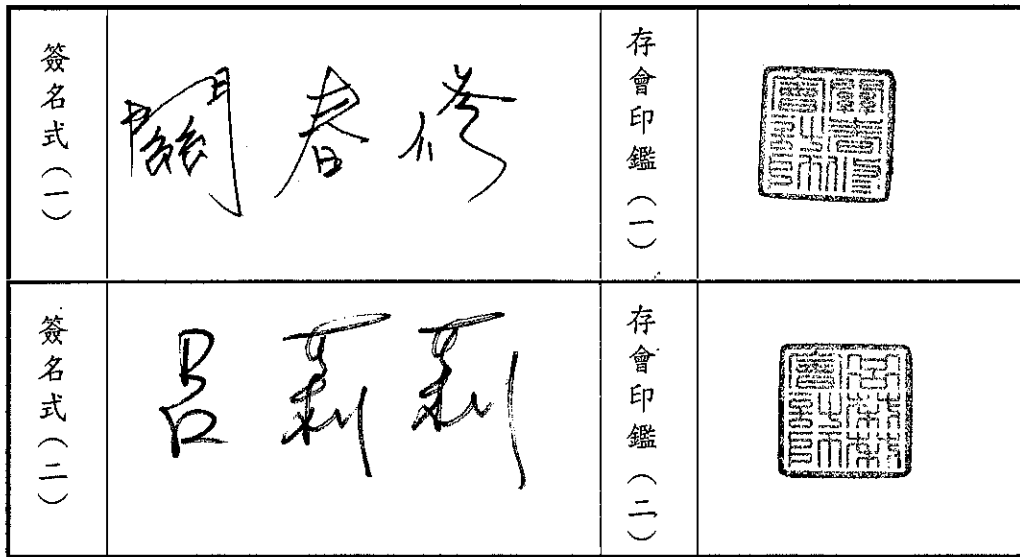 簽名式(一)
關春修
存會印鑑(一)
簽名式(二)
呂莉莉
存會印鑑(二)